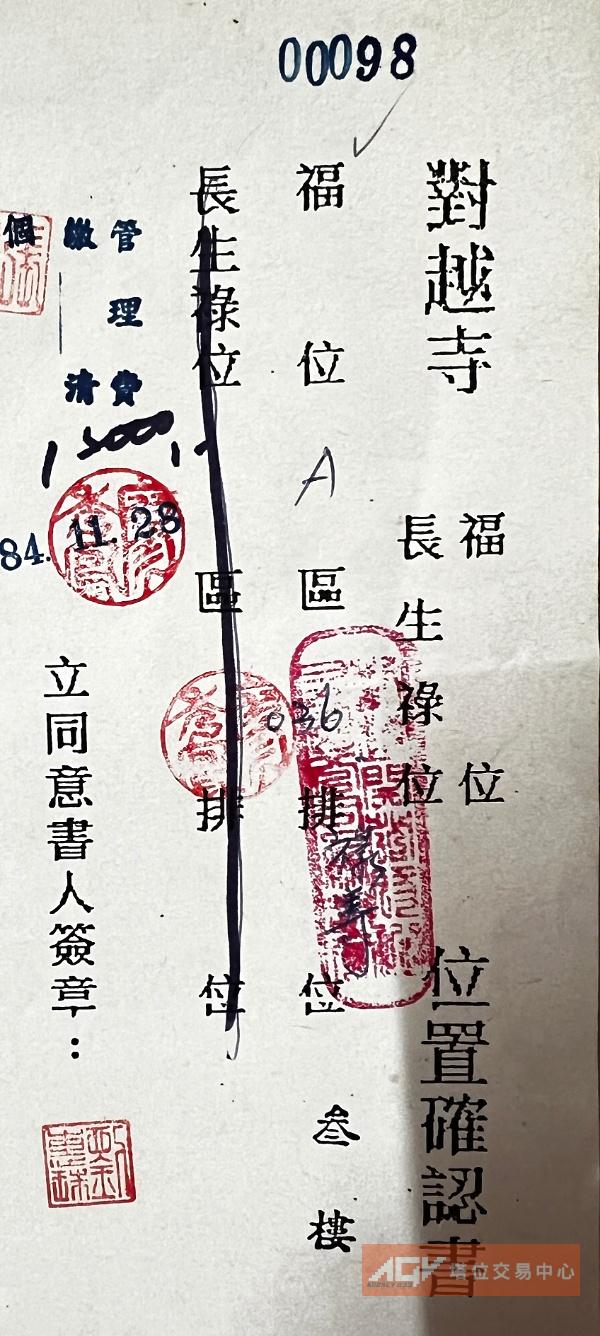 00098
對越寺
福位
長生祿位
位置確認書
福位 A 區 036 排 位 叁樓
長生祿位 區 排 位
管理費
繳清
個
84.11.28
立同意書人簽章：
AGV 塔位交易中心